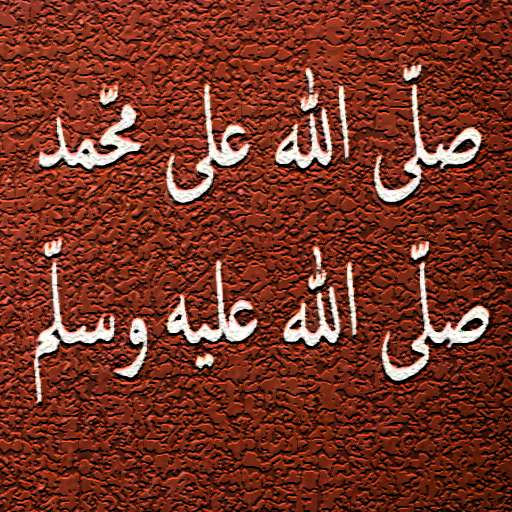 صلّى الله على محمّد
صلّى الله عليه وسلّم